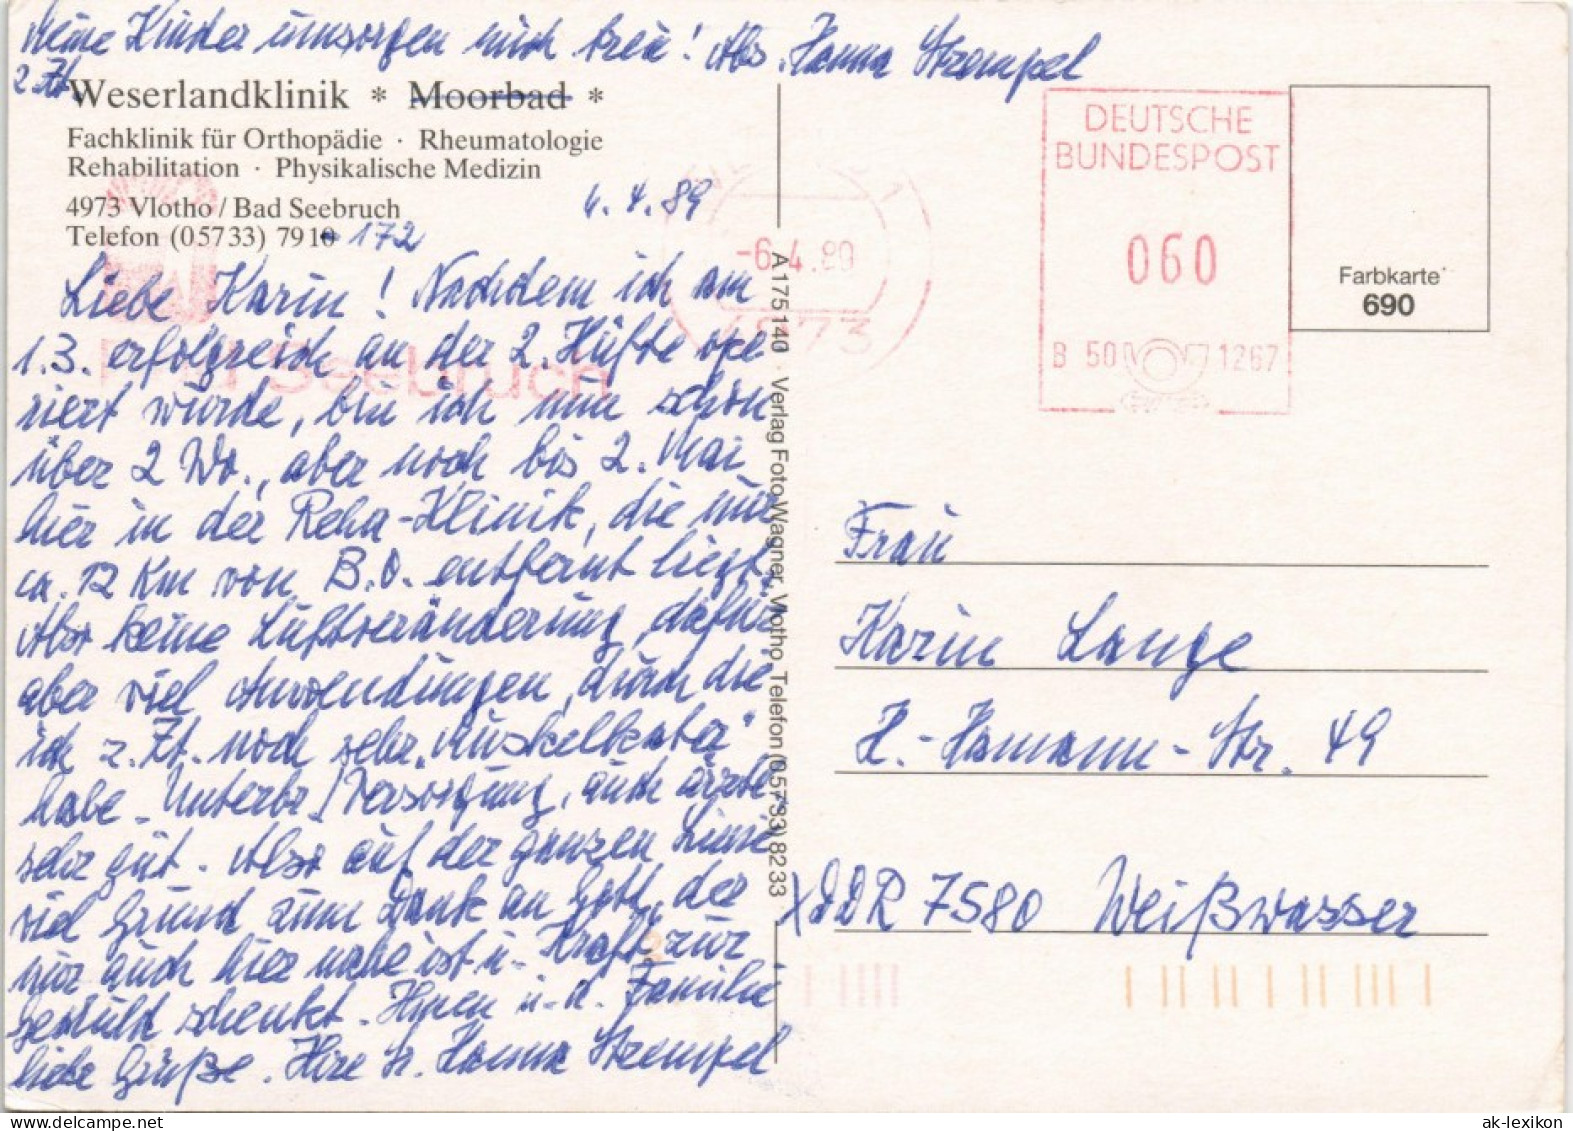 Meine Kinder umsorgen mich treu! Abs. Hanna Strempel
z. Zt.
Weserlandklinik * Moorbad *
Fachklinik für Orthopädie · Rheumatologie
Rehabilitation · Physikalische Medizin
4973 Vlotho / Bad Seebruch
Telefon (05733) 7910 - 172
6.4.89
Liebe Karin! Nachdem ich am
1.3. erfolgreich an der 2. Hüfte ope-
riert wurde, bin ich nun schon
über 2 Wo., aber noch bis 2. Mai
hier in der Reha-Klinik, die nur
ca. 12 Km von B.O. entfernt liegt,
Also keine Luftveränderung, dafür
aber viel Anwendungen, durch die
ich z. Zt. noch sehr „Muskelkater"
habe - Unterbr./Versorgung, auch ärztl.
sehr gut. Also auf der ganzen Linie
viel Grund zum Dank an Gott, der
nur auch hier nahe ist u. Kraft zur
Geduld schenkt. Ihnen u. d. Familie
liebe Grüße. Ihre Fr. Hanna Strempel
A 175 140 · Verlag Foto Wagner, Vlotho, Telefon (05733) 8233
Bad Seebruch
-6.4.89
4973
DEUTSCHE
BUNDESPOST
060
B 50 1267
Farbkarte
690
Frau
Karin Lange
H.-Hamann-Str. 49
DDR 7580 Weißwasser
ak-lexikon